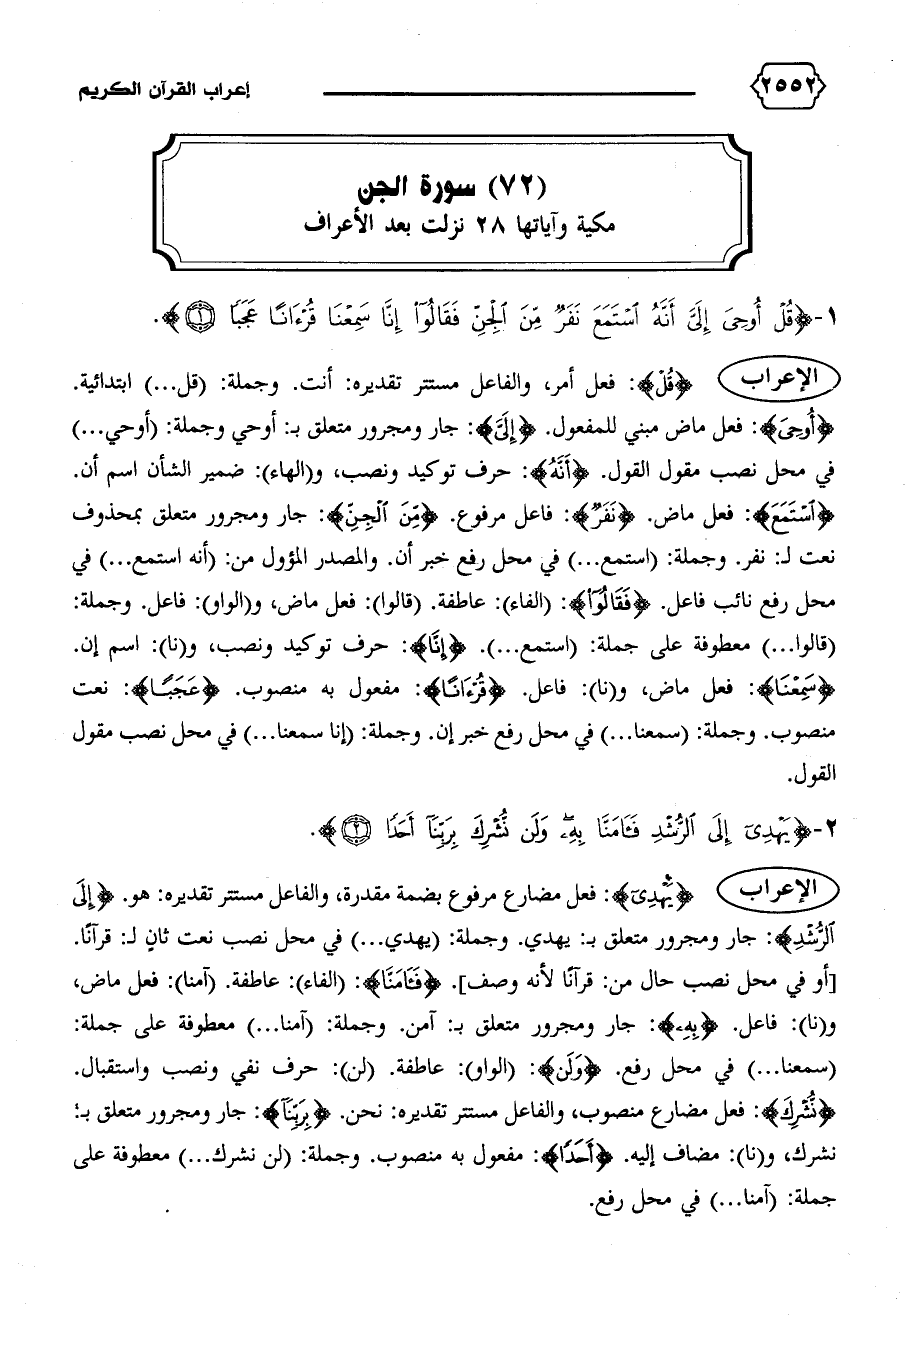 ٢٥٥٢
إعراب القرآن الكريم
(٧٢) سورة الجن
مكية وآياتها ٢٨ نزلت بعد الأعراف
١-﴿قُلْ أُوحِىَ إِلَىَّ أَنَّهُ ٱسْتَمَعَ نَفَرٌ مِّنَ ٱلْجِنِّ فَقَالُوٓا۟ إِنَّا سَمِعْنَا قُرْءَانًا عَجَبًا ۝١﴾.
الإعراب ﴿قُلْ﴾: فعل أمر، والفاعل مستتر تقديره: أنت. وجملة: (قل...) ابتدائية.
﴿أُوحِىَ﴾: فعل ماض مبني للمفعول. ﴿إِلَىَّ﴾: جار ومجرور متعلق بـ: أوحي وجملة: (أوحي...)
في محل نصب مقول القول. ﴿أَنَّهُ﴾: حرف توكيد ونصب، و(الهاء): ضمير الشأن اسم أن.
﴿ٱسْتَمَعَ﴾: فعل ماض. ﴿نَفَرٌ﴾: فاعل مرفوع. ﴿مِّنَ ٱلْجِنِّ﴾: جار ومجرور متعلق بمحذوف
نعت لـ: نفر. وجملة: (استمع...) في محل رفع خبر أن. والمصدر المؤول من: (أنه استمع...) في
محل رفع نائب فاعل. ﴿فَقَالُوٓا۟﴾: (الفاء): عاطفة. (قالوا): فعل ماض، و(الواو): فاعل. وجملة:
(قالوا...) معطوفة على جملة: (استمع...). ﴿إِنَّا﴾: حرف توكيد ونصب، و(نا): اسم إن.
﴿سَمِعْنَا﴾: فعل ماض، و(نا): فاعل. ﴿قُرْءَانًا﴾: مفعول به منصوب. ﴿عَجَبًا﴾: نعت
منصوب. وجملة: (سمعنا...) في محل رفع خبر إن. وجملة: (إنا سمعنا...) في محل نصب مقول
القول.
٢-﴿يَهْدِىٓ إِلَى ٱلرُّشْدِ فَـَٔامَنَّا بِهِۦ ۖ وَلَن نُّشْرِكَ بِرَبِّنَآ أَحَدًا ۝٢﴾.
الإعراب ﴿يَهْدِىٓ﴾: فعل مضارع مرفوع بضمة مقدرة، والفاعل مستتر تقديره: هو. ﴿إِلَى
ٱلرُّشْدِ﴾: جار ومجرور متعلق بـ: يهدي. وجملة: (يهدي...) في محل نصب نعت ثانٍ لـ: قرآنًا.
[أو في محل نصب حال من: قرآنًا لأنه وصف]. ﴿فَـَٔامَنَّا﴾: (الفاء): عاطفة. (آمنا): فعل ماض،
و(نا): فاعل. ﴿بِهِۦ﴾: جار ومجرور متعلق بـ: آمن. وجملة: (آمنا...) معطوفة على جملة:
(سمعنا...) في محل رفع. ﴿وَلَن﴾: (الواو): عاطفة. (لن): حرف نفي ونصب واستقبال.
﴿نُّشْرِكَ﴾: فعل مضارع منصوب، والفاعل مستتر تقديره: نحن. ﴿بِرَبِّنَآ﴾: جار ومجرور متعلق بـ:
نشرك، و(نا): مضاف إليه. ﴿أَحَدًا﴾: مفعول به منصوب. وجملة: (لن نشرك...) معطوفة على
جملة: (آمنا...) في محل رفع.